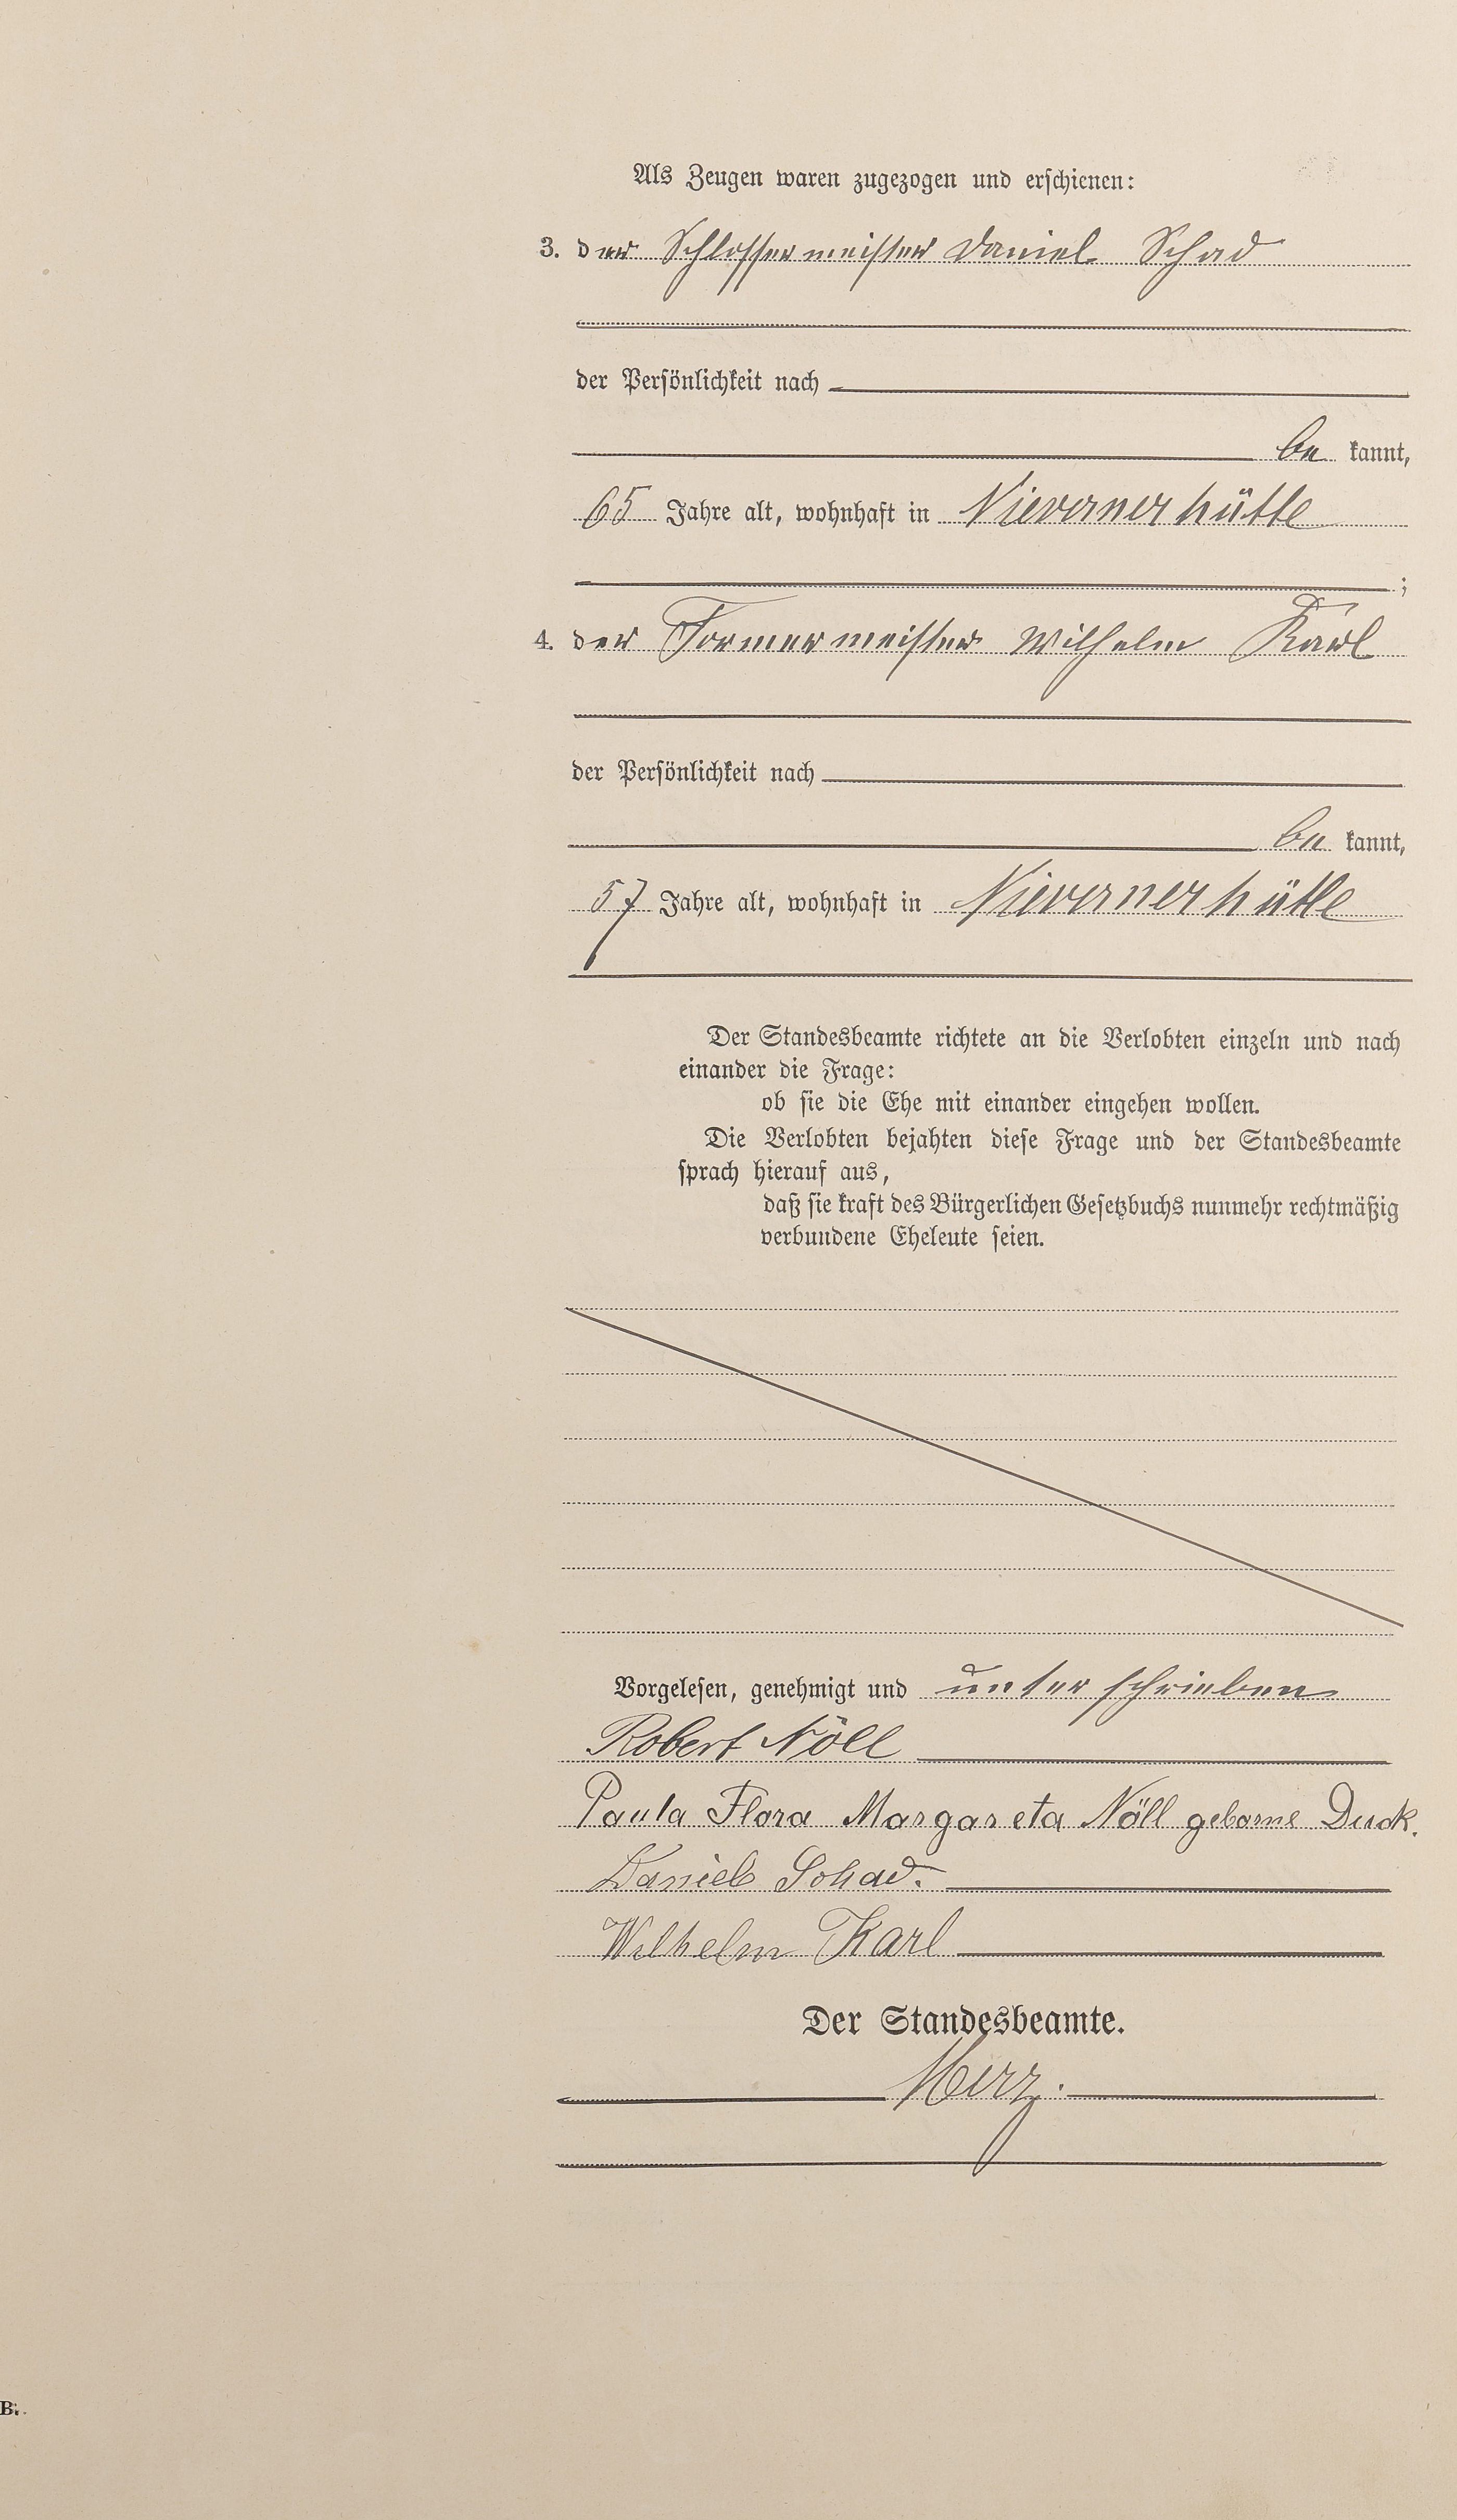 Als Zeugen waren zugezogen und erschienen:
3. der Schlossermeister Daniel Schad
der Persönlichkeit nach
be kannt,
65 Jahre alt, wohnhaft in Nievernerhütte
;
4. der Formermeister Wilhelm Karl
der Persönlichkeit nach
be kannt,
57 Jahre alt, wohnhaft in Nievernerhütte
Der Standesbeamte richtete an die Verlobten einzeln und nach
einander die Frage:
ob sie die Ehe mit einander eingehen wollen.
Die Verlobten bejahten diese Frage und der Standesbeamte
sprach hierauf aus,
daß sie kraft des Bürgerlichen Gesetzbuchs nunmehr rechtmäßig
verbundene Eheleute seien.
Vorgelesen, genehmigt und unterschrieben
Robert Nöll
Paula Flora Margareta Nöll geborne Duck.
Daniel Schad.
Wilhelm Karl
Der Standesbeamte.
Merz.
B.